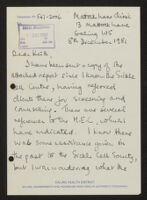 541-2006
Mattock Lane Clinic
13 Mattock Lane
Ealing W5
8th December 1981
Dear Keith,
I have been sent a copy of the
attached report since I know the Sickle
Cell Centre, having referred
clients there for screening and
counselling. There was several
references to the H.E.C. which I
have indicated. I know there
was some assistance given in
the past to the Sickle Cell Society,
but I was wondering what the
EALING HEALTH DISTRICT